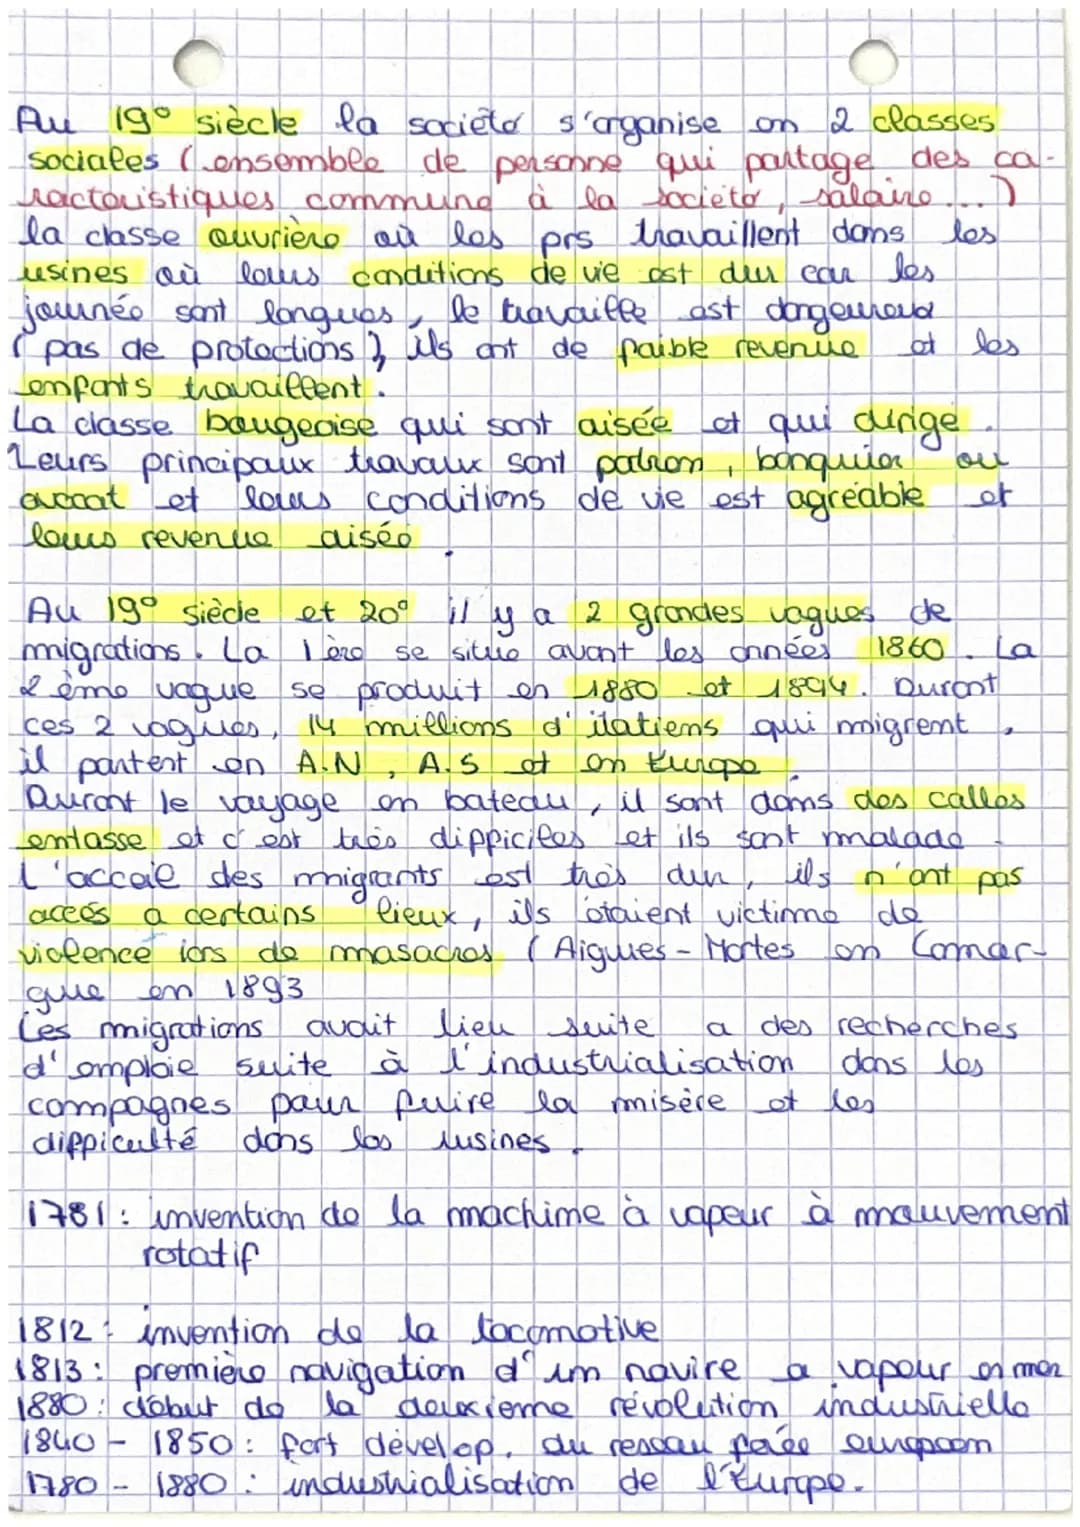 Au 19° siècle la société s'organise en 2 classes
sociales (ensemble de personne qui partage des ca-
ractéristiques commune à la société, salaire...)
la classe ouvrière où les prs travaillent dans les
usines où leurs conditions de vie est dur car les
journée sont longues, le travaille est dangereux
(pas de protections), ils ont de faible revenue et les
enfants travaillent.
La classe bourgeoise qui sont aisée et qui dirige.
Leurs principaux travaux sont patron, banquier ou
avocat et leurs conditions de vie est agréable et
leurs revenue aisée.
Au 19° siècle et 20° il y a 2 grandes vagues de
migrations. La 1ère se situe avant les années 1860. La
2ème vague se produit en 1880 et 1894. Durant
ces 2 vagues, 14 millions d'italiens qui migrent,
il partent en A.N, A.S et en Europe.
Durant le voyage en bateau, il sont dans des calles
entasse et c'est très difficiles et ils sont malade.
L'acceuil des migrants est très dur, ils n'ont pas
accès a certains lieux, ils étaient victime de
violence lors de masacres (Aigues-Mortes en Camar-
gue en 1893
Les migrations avait lieu suite a des recherches
d'emploie suite à l'industrialisation dans les
campagnes pour fuire la misère et les
difficulté dans les usines.
1781: invention de la machine à vapeur à mouvement
rotatif
1812: invention de la locomotive
1813: première navigation d'un navire a vapeur en mer
1880: début de la deuxieme révolution industrielle
1840 - 1850: fort dévelop. du reseau ferée europeen
1780 - 1880: industrialisation de l'Europe.